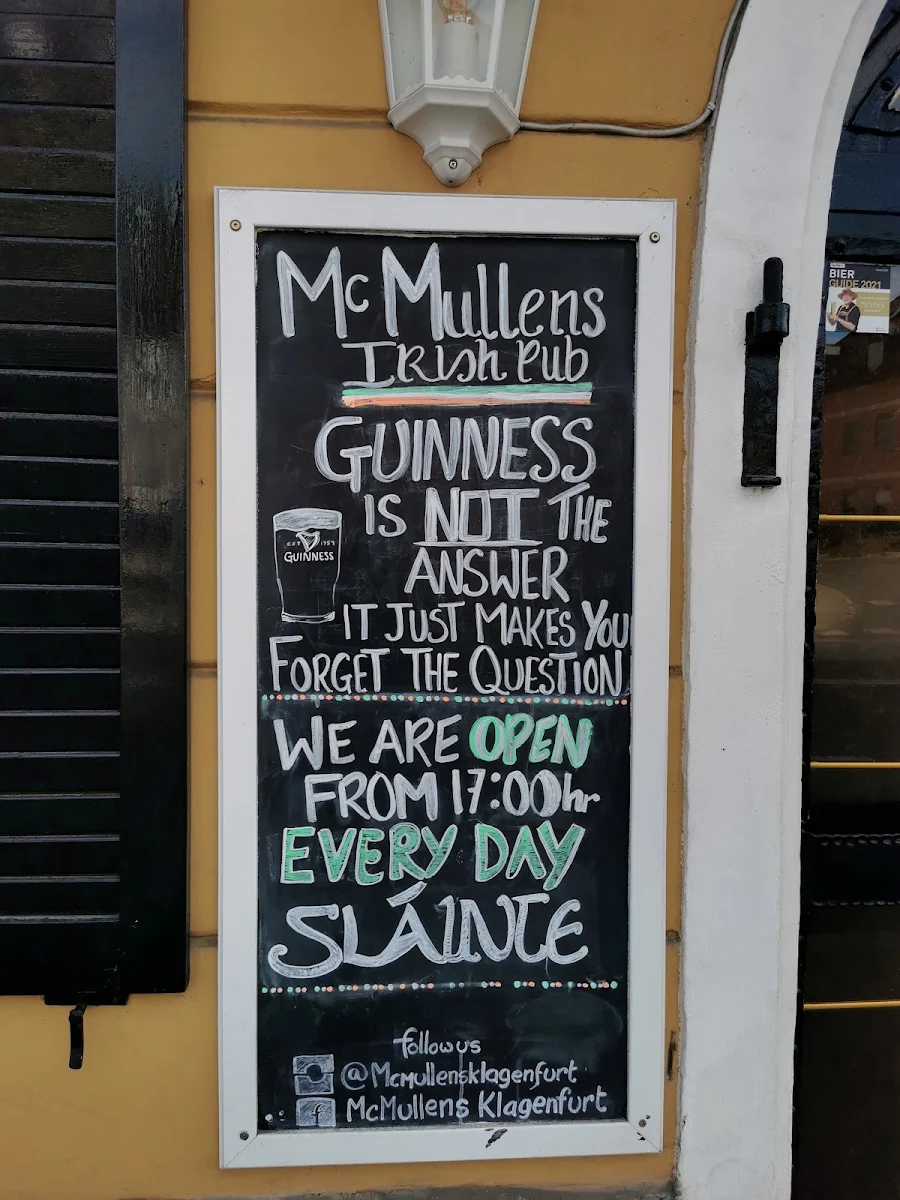 McMullens
Irish Pub
GUINNESS
IS NOT THE
ANSWER
EST 1759
GUINNESS
IT JUST MAKES YOU
FORGET THE QUESTION
WE ARE OPEN
FROM 17:00hr
EVERY DAY
SLÁINTE
follow us
@McMullensklagenfurt
f McMullens Klagenfurt
BIER
GUIDE 2021